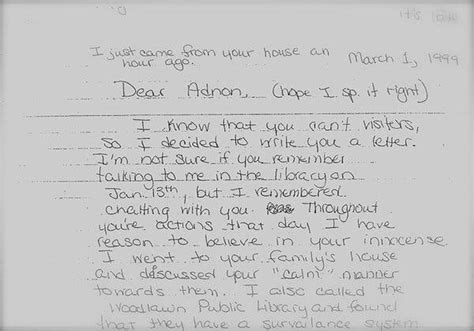 I just came from your house an
hour ago.
March 1, 1999
Dear Adnon, (hope I sp. it right)
I know that you can't visitors,
so I decided to write you a letter.
I'm not sure if you remember
talking to me in the library on
Jan. 13th, but I remembered
chatting with you. Throughout
you're actions that day I have
reason to believe in your innocense.
I went to your family's house
and discussed your "calm" manner
towards them. I also called the
Woodlawn Public Library and found
that they have a survailance system